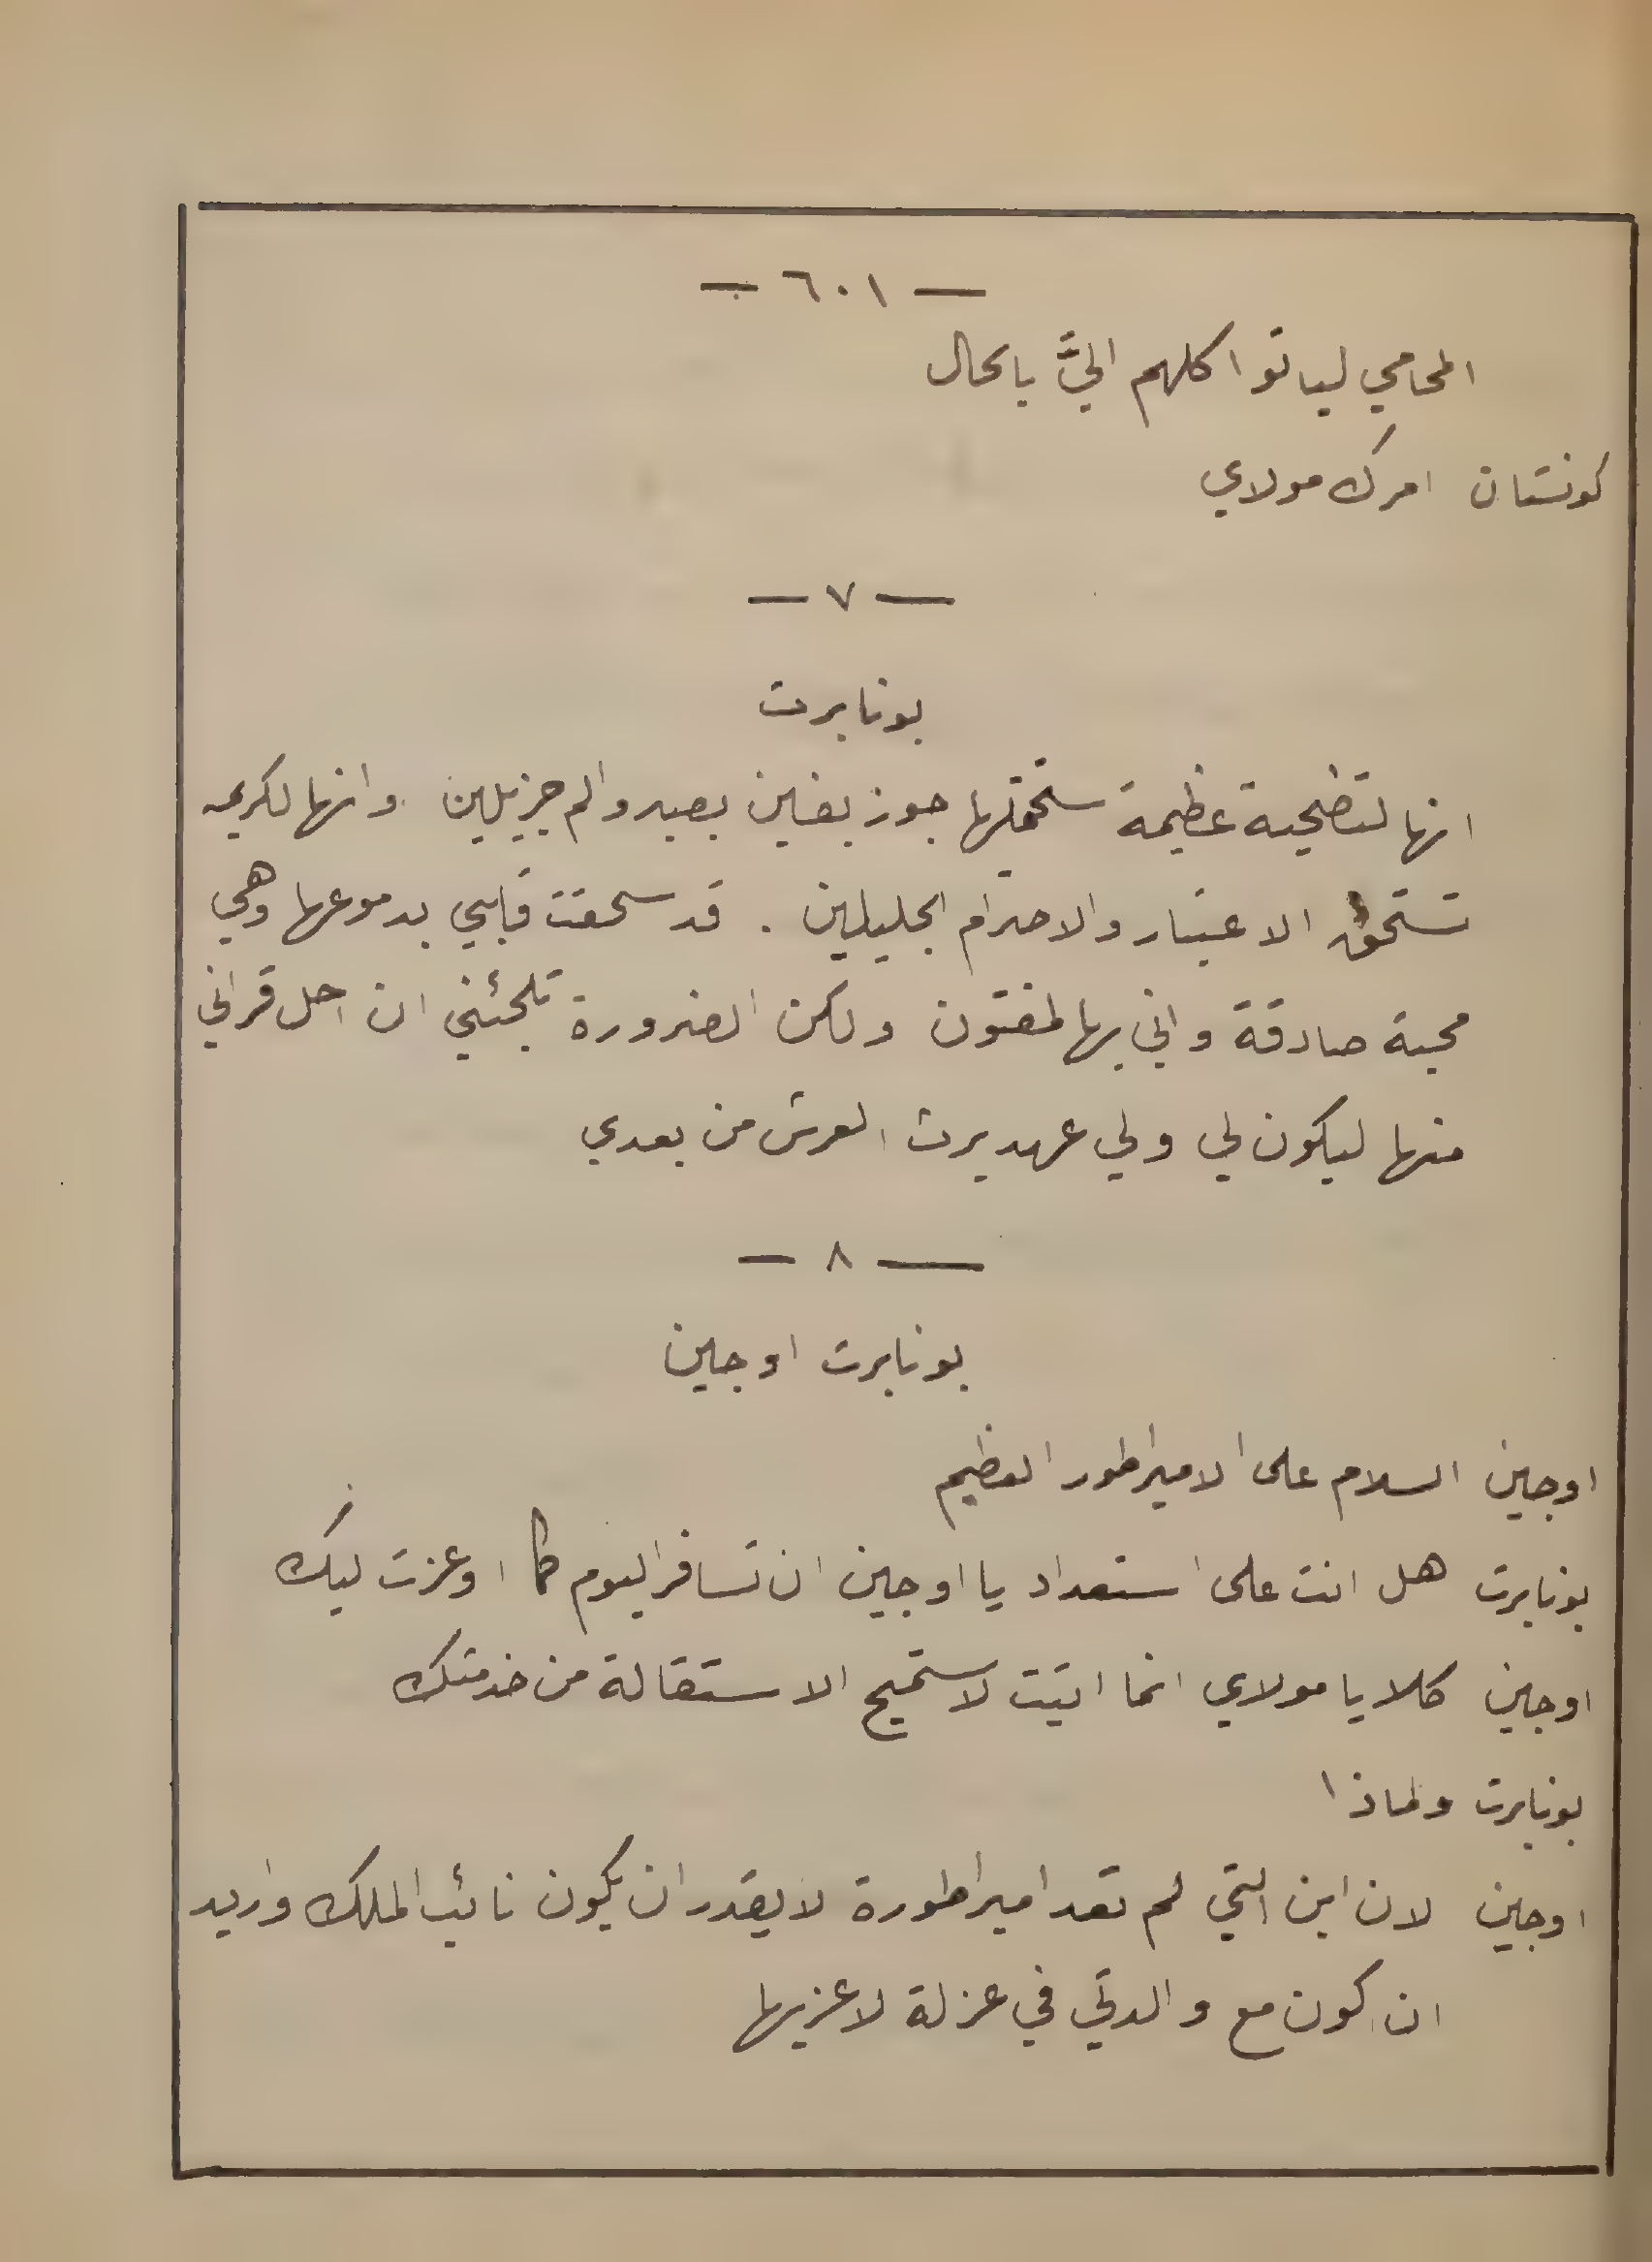 — ٦٠١ —
المحامي لياتوا كلهم اليَّ بالحال
كونستان امرك مولاي
— ٧ —
بونابرت
انها لتضحية عظيمة ستحملها جوزيفين بصبر والم جزيلين . وانها لكريمه
تستحق الاعتبار والاحترام الجليلين . قد سحقت قلبي بدموعها وهي
محبة صادقة واني بها لمفتون ولكن الضرورة تلجئني ان احل قراني
منها ليكون لي ولي عهد يرث العرش من بعدي
— ٨ —
بونابرت اوجين
اوجين السلام على الامبراطور العظيم
بونابرت هل انت على استعداد يا اوجين ان تسافر اليوم كما اوعزت ليك
اوجين كلا يا مولاي انما اتيت لاستميح الاستقالة من خدمتك
بونابرت ولماذا
اوجين لان ابن التي لم تعد امبراطورة لا يقدر ان يكون نائب الملك واريد
ان اكون مع والدتي في عزلة لاعزيها